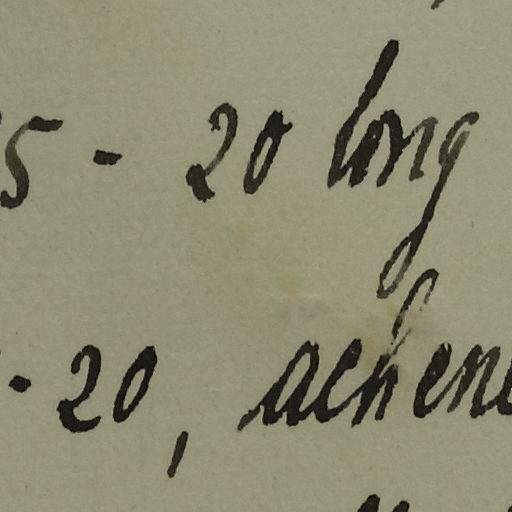 5 - 20 long
- 20, achene